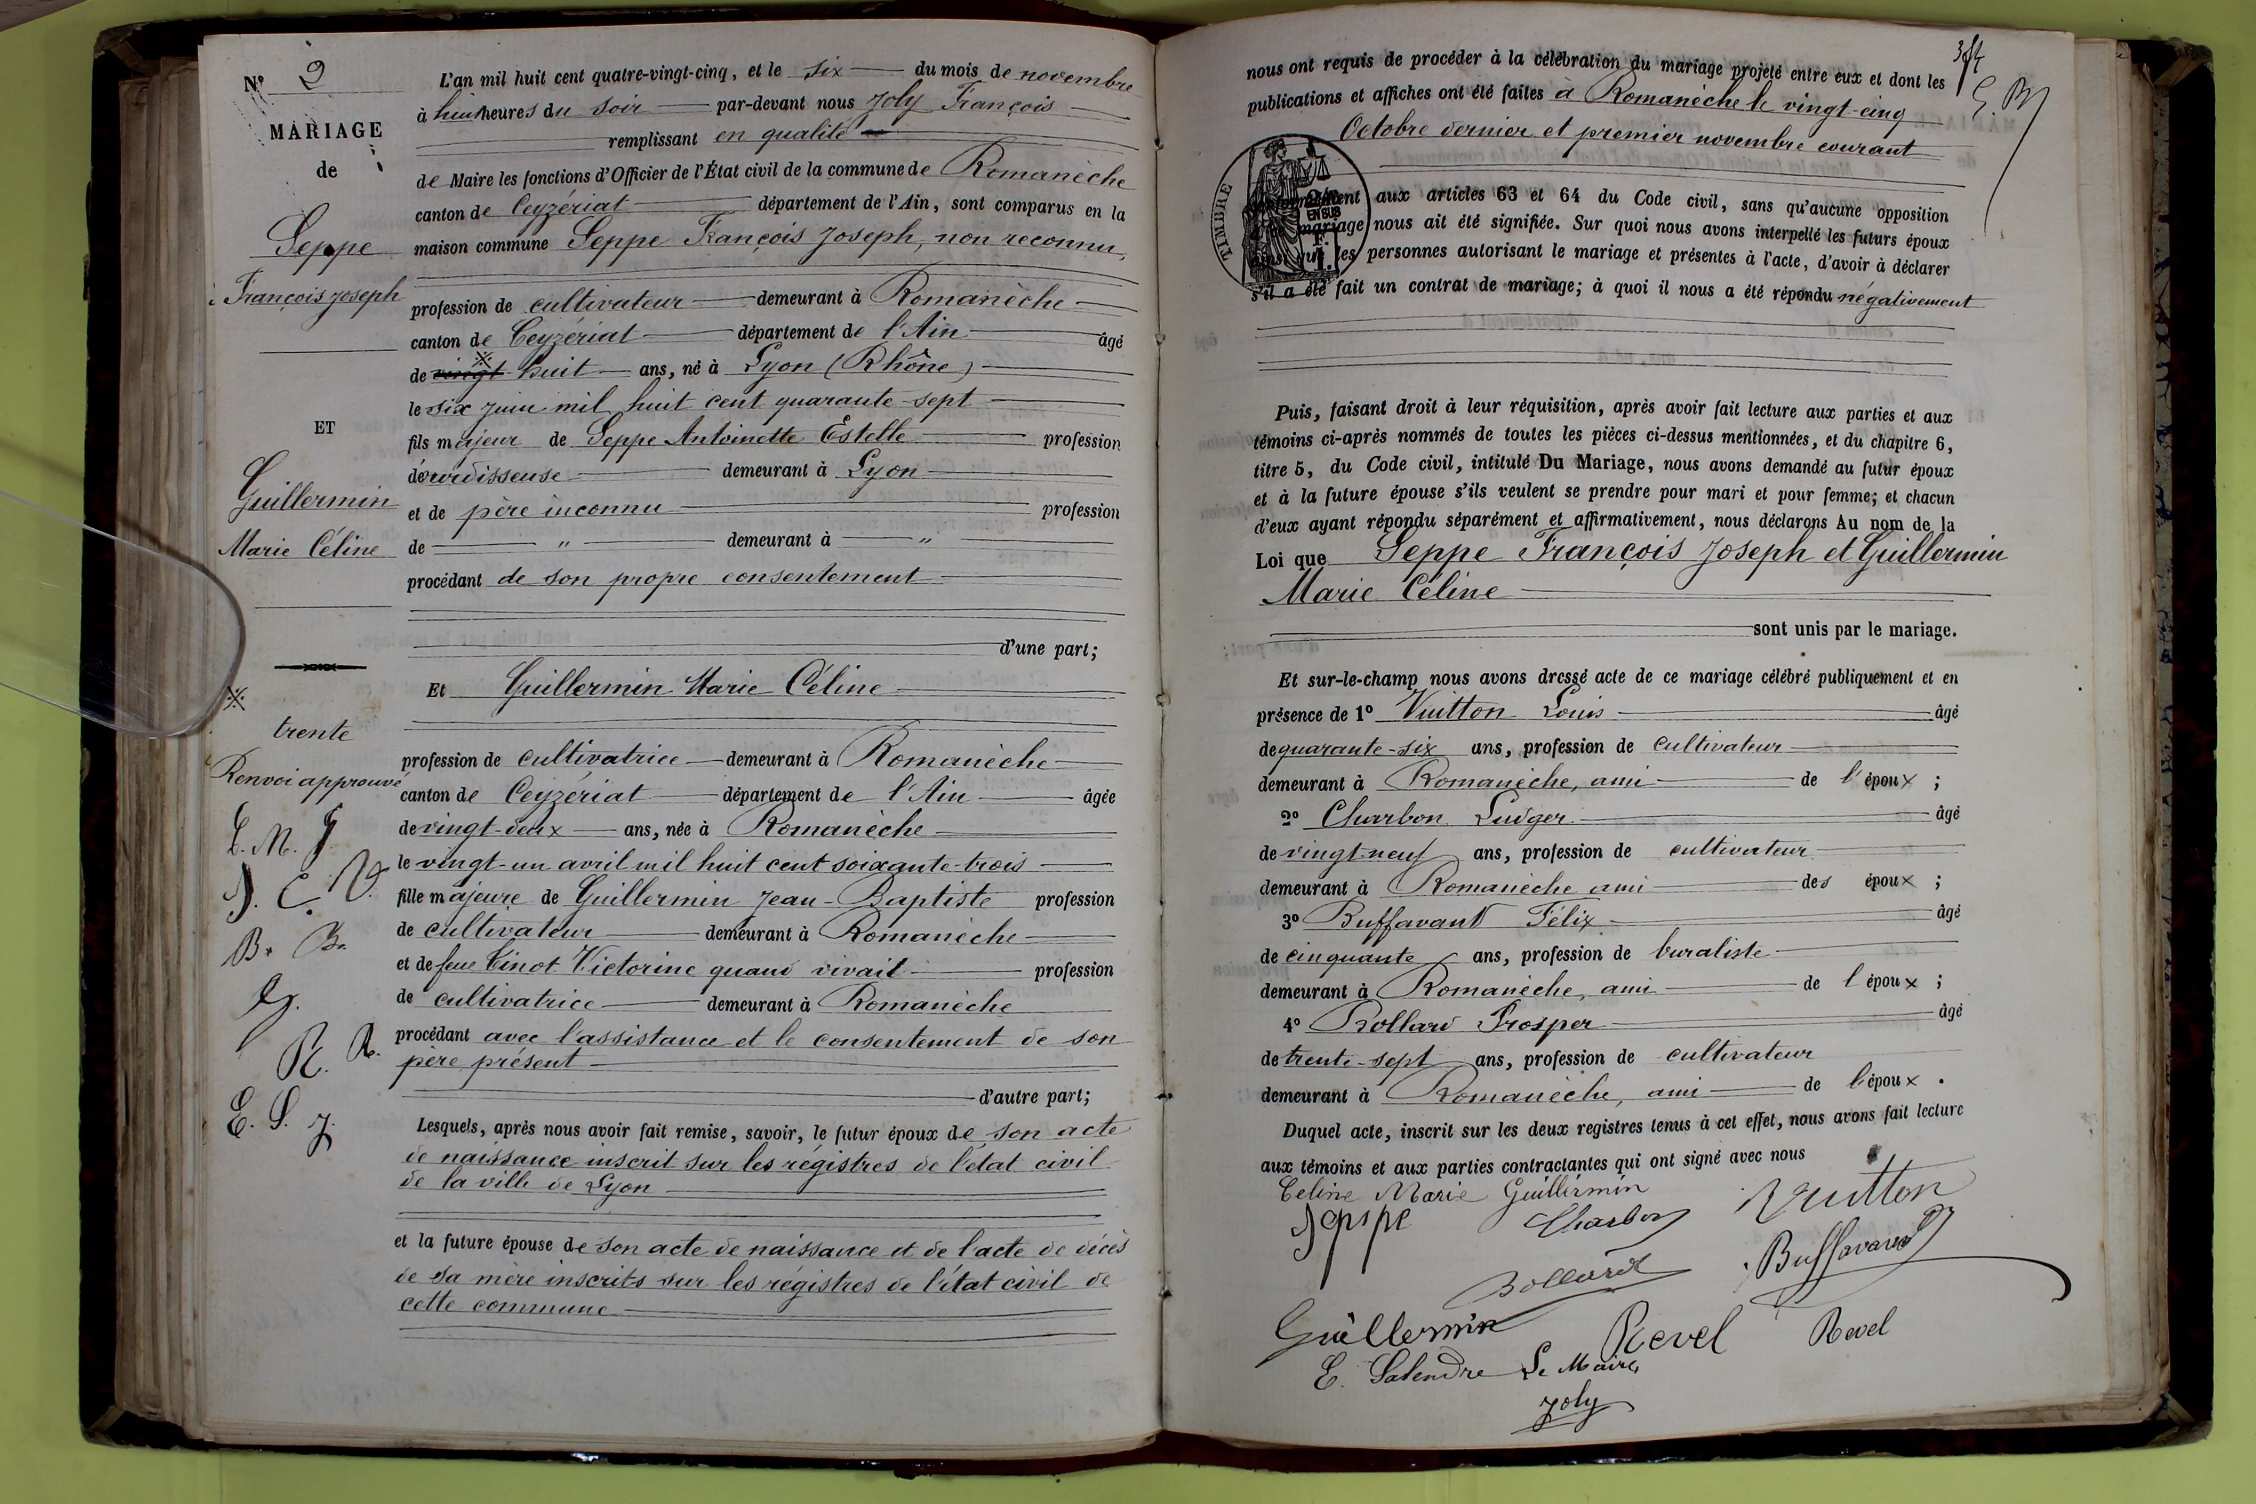 N° 2
MARIAGE
de
Seppe
François Joseph
ET
Guillermin
Marie Céline
※
trente
Renvoi approuvé
C. M. G
J. C. V.
B. B.
G.
R. R.
E. S. J.
L'an mil huit cent quatre-vingt-cinq, et le six du mois de novembre
à huit heures du soir par-devant nous Joly François
remplissant en qualité
de Maire les fonctions d'Officier de l'État civil de la commune de Romanèche
canton de Ceyzériat département de l'Ain, sont comparus en la
maison commune Seppe François Joseph, non reconnu,
profession de cultivateur demeurant à Romanèche
canton de Ceyzériat département de l'Ain âgé
de vingt ※ huit ans, né à Lyon (Rhône)
le six juin mil huit cent quarante-sept
fils majeur de Seppe Antoinette Estelle profession
d'ourdisseuse demeurant à Lyon
et de père inconnu profession
de " demeurant à "
procédant de son propre consentement
d'une part;
Et Guillermin Marie Céline
profession de cultivatrice demeurant à Romanèche
canton de Ceyzériat département de l'Ain âgée
de vingt-deux ans, née à Romanèche
le vingt-un avril mil huit cent soixante-trois
fille majeure de Guillermin Jean-Baptiste profession
de cultivateur demeurant à Romanèche
et de feue Tinot Victorine quand vivait profession
de cultivatrice demeurant à Romanèche
procédant avec l'assistance et le consentement de son
père présent
d'autre part;
Lesquels, après nous avoir fait remise, savoir, le futur époux de son acte
de naissance inscrit sur les régistres de l'état civil
de la ville de Lyon
et la future épouse de son acte de naissance et de l'acte de décès
de sa mère inscrits sur les régistres de l'état civil de
cette commune
nous ont requis de procéder à la célébration du mariage projeté entre eux et dont les
publications et affiches ont été faites à Romanèche le vingt-cinq
Octobre dernier et premier novembre courant
TIMBRE
EN SUS
aux articles 63 et 64 du Code civil, sans qu'aucune opposition
mariage nous ait été signifiée. Sur quoi nous avons interpellé les futurs époux
les personnes autorisant le mariage et présentes à l'acte, d'avoir à déclarer
s'il a été fait un contrat de mariage; à quoi il nous a été répondu négativement
Puis, faisant droit à leur réquisition, après avoir fait lecture aux parties et aux
témoins ci-après nommés de toutes les pièces ci-dessus mentionnées, et du chapitre 6,
titre 5, du Code civil, intitulé Du Mariage, nous avons demandé au futur époux
et à la future épouse s'ils veulent se prendre pour mari et pour femme; et chacun
d'eux ayant répondu séparément et affirmativement, nous déclarons Au nom de la
Loi que Seppe François Joseph et Guillermin
Marie Céline
sont unis par le mariage.
Et sur-le-champ nous avons dressé acte de ce mariage célébré publiquement et en
présence de 1° Vuitton Louis âgé
de quarante-six ans, profession de cultivateur
demeurant à Romanèche, ami de l'époux ;
2° Charbon Ludger âgé
de vingt-neuf ans, profession de cultivateur
demeurant à Romanèche ami des époux ;
3° Buffavand Félix âgé
de cinquante ans, profession de buraliste
demeurant à Romanèche, ami de l'époux ;
4° Rollard Prosper âgé
de trente-sept ans, profession de cultivateur
demeurant à Romanèche, ami de l'époux .
Duquel acte, inscrit sur les deux registres tenus à cet effet, nous avons fait lecture
aux témoins et aux parties contractantes qui ont signé avec nous
Celine Marie Guillermin
Vuitton
Seppe
Charbon
Buffavand
Rollard
Guillermin
Revel
Revel
E. Salendre
Le Maire
Joly